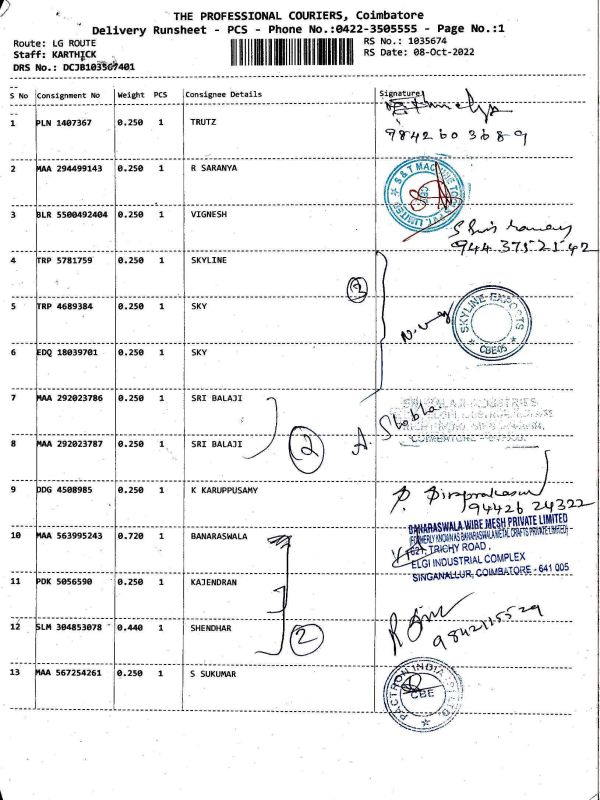 THE PROFESSIONAL COURIERS, Coimbatore
Delivery Runsheet - PCS - Phone No.:0422-3505555 - Page No.:1
Route: LG ROUTE
RS No.: 1035674
Staff: KARTHICK
RS Date: 08-Oct-2022
DRS No.: DCJB103567401
S No Consignment No Weight PCS Consignee Details Signature
1 PLN 1407367 0.250 1 TRUTZ
9842603689
2 MAA 294499143 0.250 1 R SARANYA
S & T MACHINE TOOLS PVT. LIMITED
3 BLR 5500492404 0.250 1 VIGNESH
9443752142
4 TRP 5781759 0.250 1 SKYLINE
5 TRP 4689384 0.250 1 SKY
SKYLINE EXPORTS
CBE05
6 EDQ 18039701 0.250 1 SKY
7 MAA 292023786 0.250 1 SRI BALAJI
A. Shobha
8 MAA 292023787 0.250 1 SRI BALAJI
2
9 DDG 4508985 0.250 1 K KARUPPUSAMY
94426 24322
10 MAA 563995243 0.720 1 BANARASWALA
BANARASWALA WIRE MESH PRIVATE LIMITED
(FORMERLY KNOWN AS BANARASWALA METAL CRAFTS PRIVATE LIMITED)
621, TRICHY ROAD,
ELGI INDUSTRIAL COMPLEX
SINGANALLUR, COIMBATORE - 641 005
11 PDK 5056590 0.250 1 KAJENDRAN
12 SLM 304853078 0.440 1 SHENDHAR
2
9842115529
13 MAA 567254261 0.250 1 S SUKUMAR
PACTRON INDIA PVT LTD
CBE